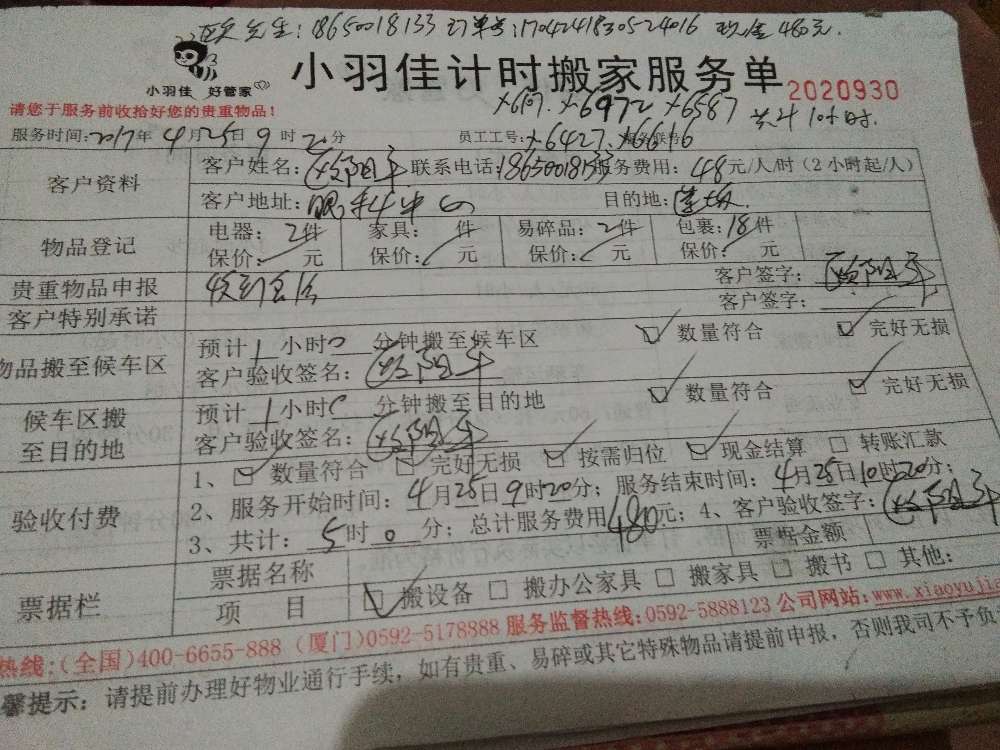 先生:18650018133 订单号:1704241830524016 现金480元.
小羽佳 好管家
小羽佳计时搬家服务单
2020930
请您于服务前收拾好您的贵重物品!
x6107. x6972 x6587 共计10小时.
服务时间:2017年4月25日9时20分 员工工号:x6427. x6616
客户资料 客户姓名: 联系电话:18650018133 服务费用:48元/人/时(2小时起/人)
客户地址:眼科中心 目的地:
物品登记 电器:2件 家具: 件 易碎品:2件 包裹:18件
保价: 元 保价: 元 保价: 元 保价: 元
贵重物品申报 客户签字:
客户特别承诺 客户签字:
物品搬至候车区 预计1小时0分钟搬至候车区 数量符合 完好无损
客户验收签名:
候车区搬至目的地 预计1小时0分钟搬至目的地 数量符合 完好无损
客户验收签名:
验收付费 1、数量符合 完好无损 按需归位 现金结算 转账汇款
2、服务开始时间:4月25日9时20分;服务结束时间:4月25日10时20分;
3、共计:5时0分;总计服务费用480元;4、客户验收签字:
票据栏 票据名称 票据金额
项 目 搬设备 搬办公家具 搬家具 搬书 其他:
热线:(全国)400-6655-888 (厦门)0592-5178888 服务监督热线:0592-5888123 公司网站:www.xiaoyujia
馨提示:请提前办理好物业通行手续,如有贵重、易碎或其它特殊物品请提前申报,否则我司不予负